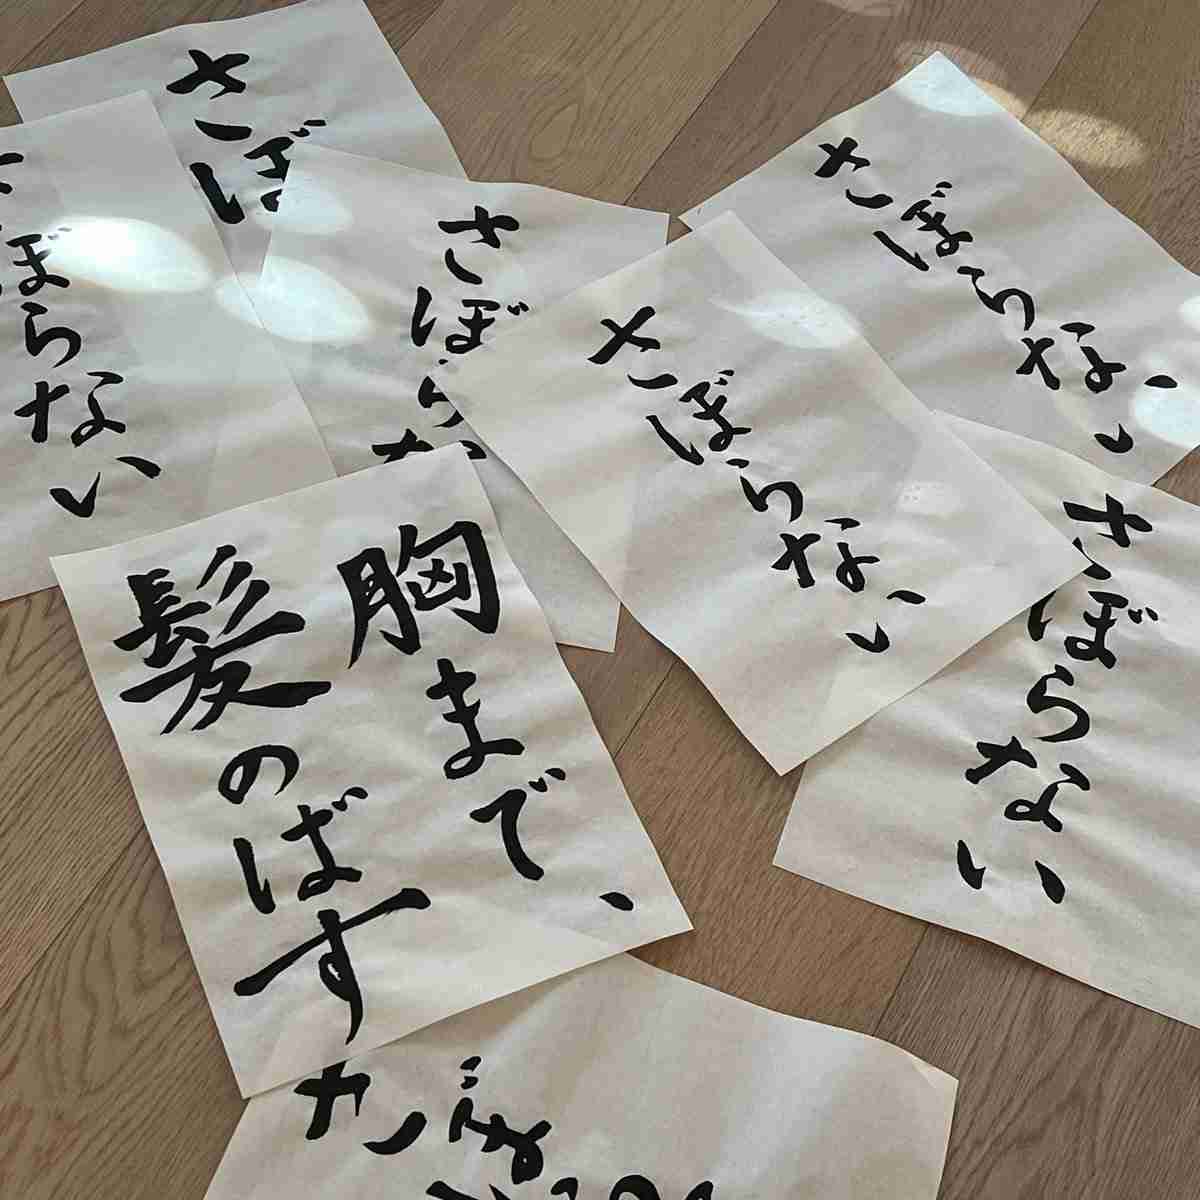 さぼ
さぼらない
さぼらな
さぼらない
さぼらない
さぼらない
胸まで、
髪のばす
さぼ